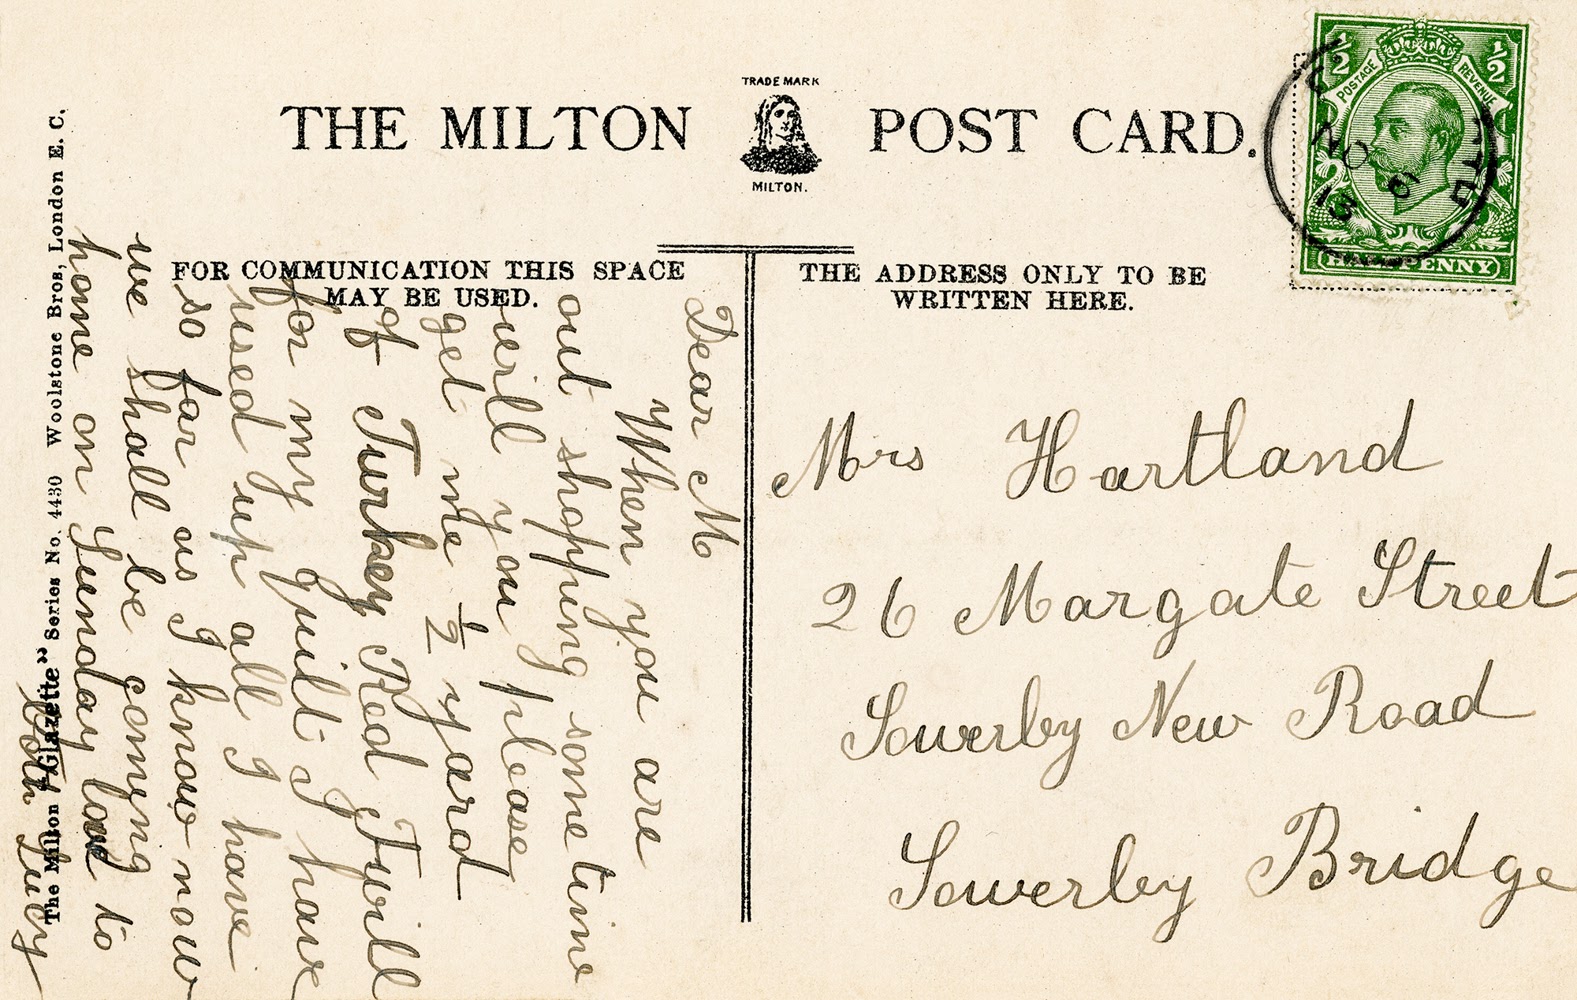 TRADE MARK
THE MILTON POST CARD.
MILTON.
FOR COMMUNICATION THIS SPACE
MAY BE USED.
THE ADDRESS ONLY TO BE
WRITTEN HERE.
½ ½
POSTAGE REVENUE
NO 6
13
Dear M
When you are
out shopping some time
will you please
get me ½ yard
of Turkey Red Twill
for my quilt I have
used up all I have
so far as I know now
we shall be coming
home on Sunday love to
Lucy
Mrs Hartland
26 Margate Street
Sowerby New Road
Sowerby Bridge
The Milton "Glazette" Series No. 4430 Woolstone Bros, London E. C.